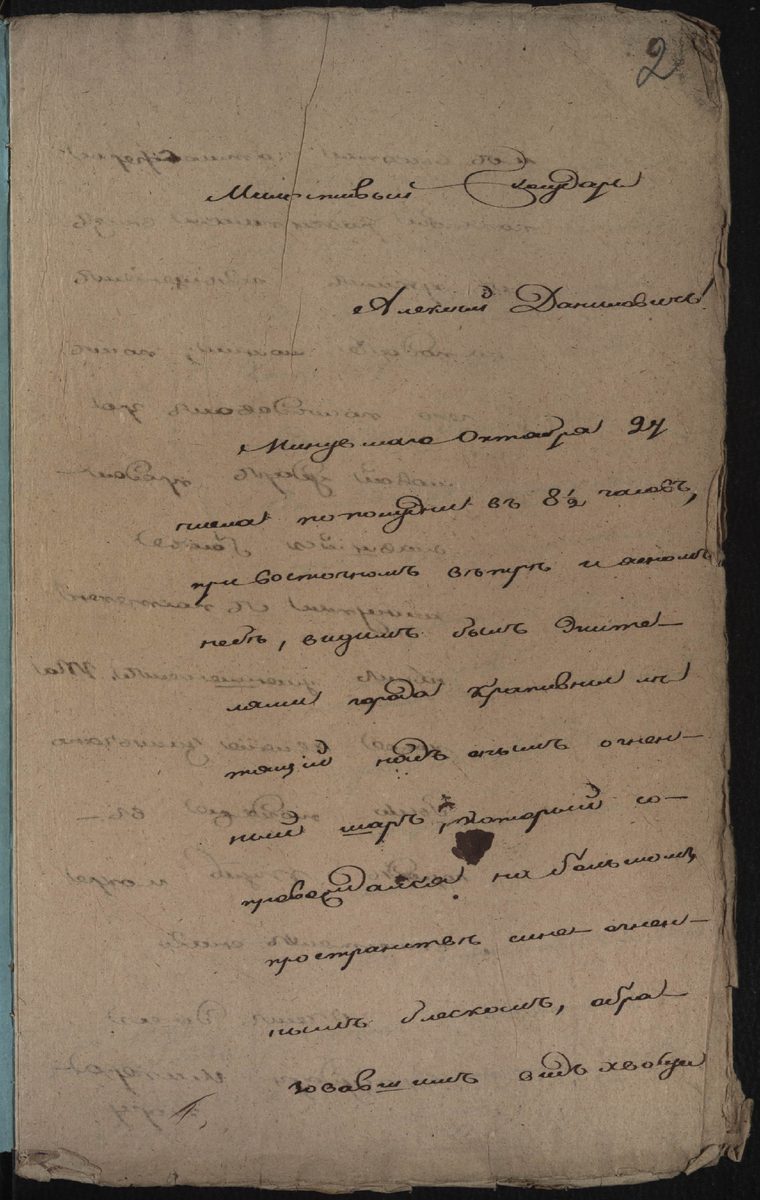 2
Милостивый Государь
Алексей Данилович!
Минувшаго Октября 24
числа по полудни въ 8½ часовъ,
при восточномъ ветре и ясномъ
небе, видимъ былъ жите-
лями города Крапивны ле
тящій надъ онымъ огнен-
ный шаръ, который со-
провождался на большомъ
пространстве сине огнен-
нымъ блескомъ, обра
зовавшимъ видъ хвоста